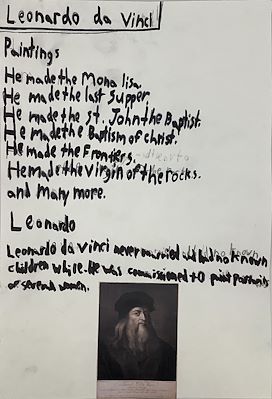 Leonardo da Vinci
Paintings
He made the Mona lisa.
He made the last supper.
He made the St. John the Baptist.
He made the Baptism of christ.
He made the
He made the Virgin of the rocks.
and Many more.
Leonardo
Leonardo da vinci never married and had no known
children while. He was commissioned to paint portraits
of several women.